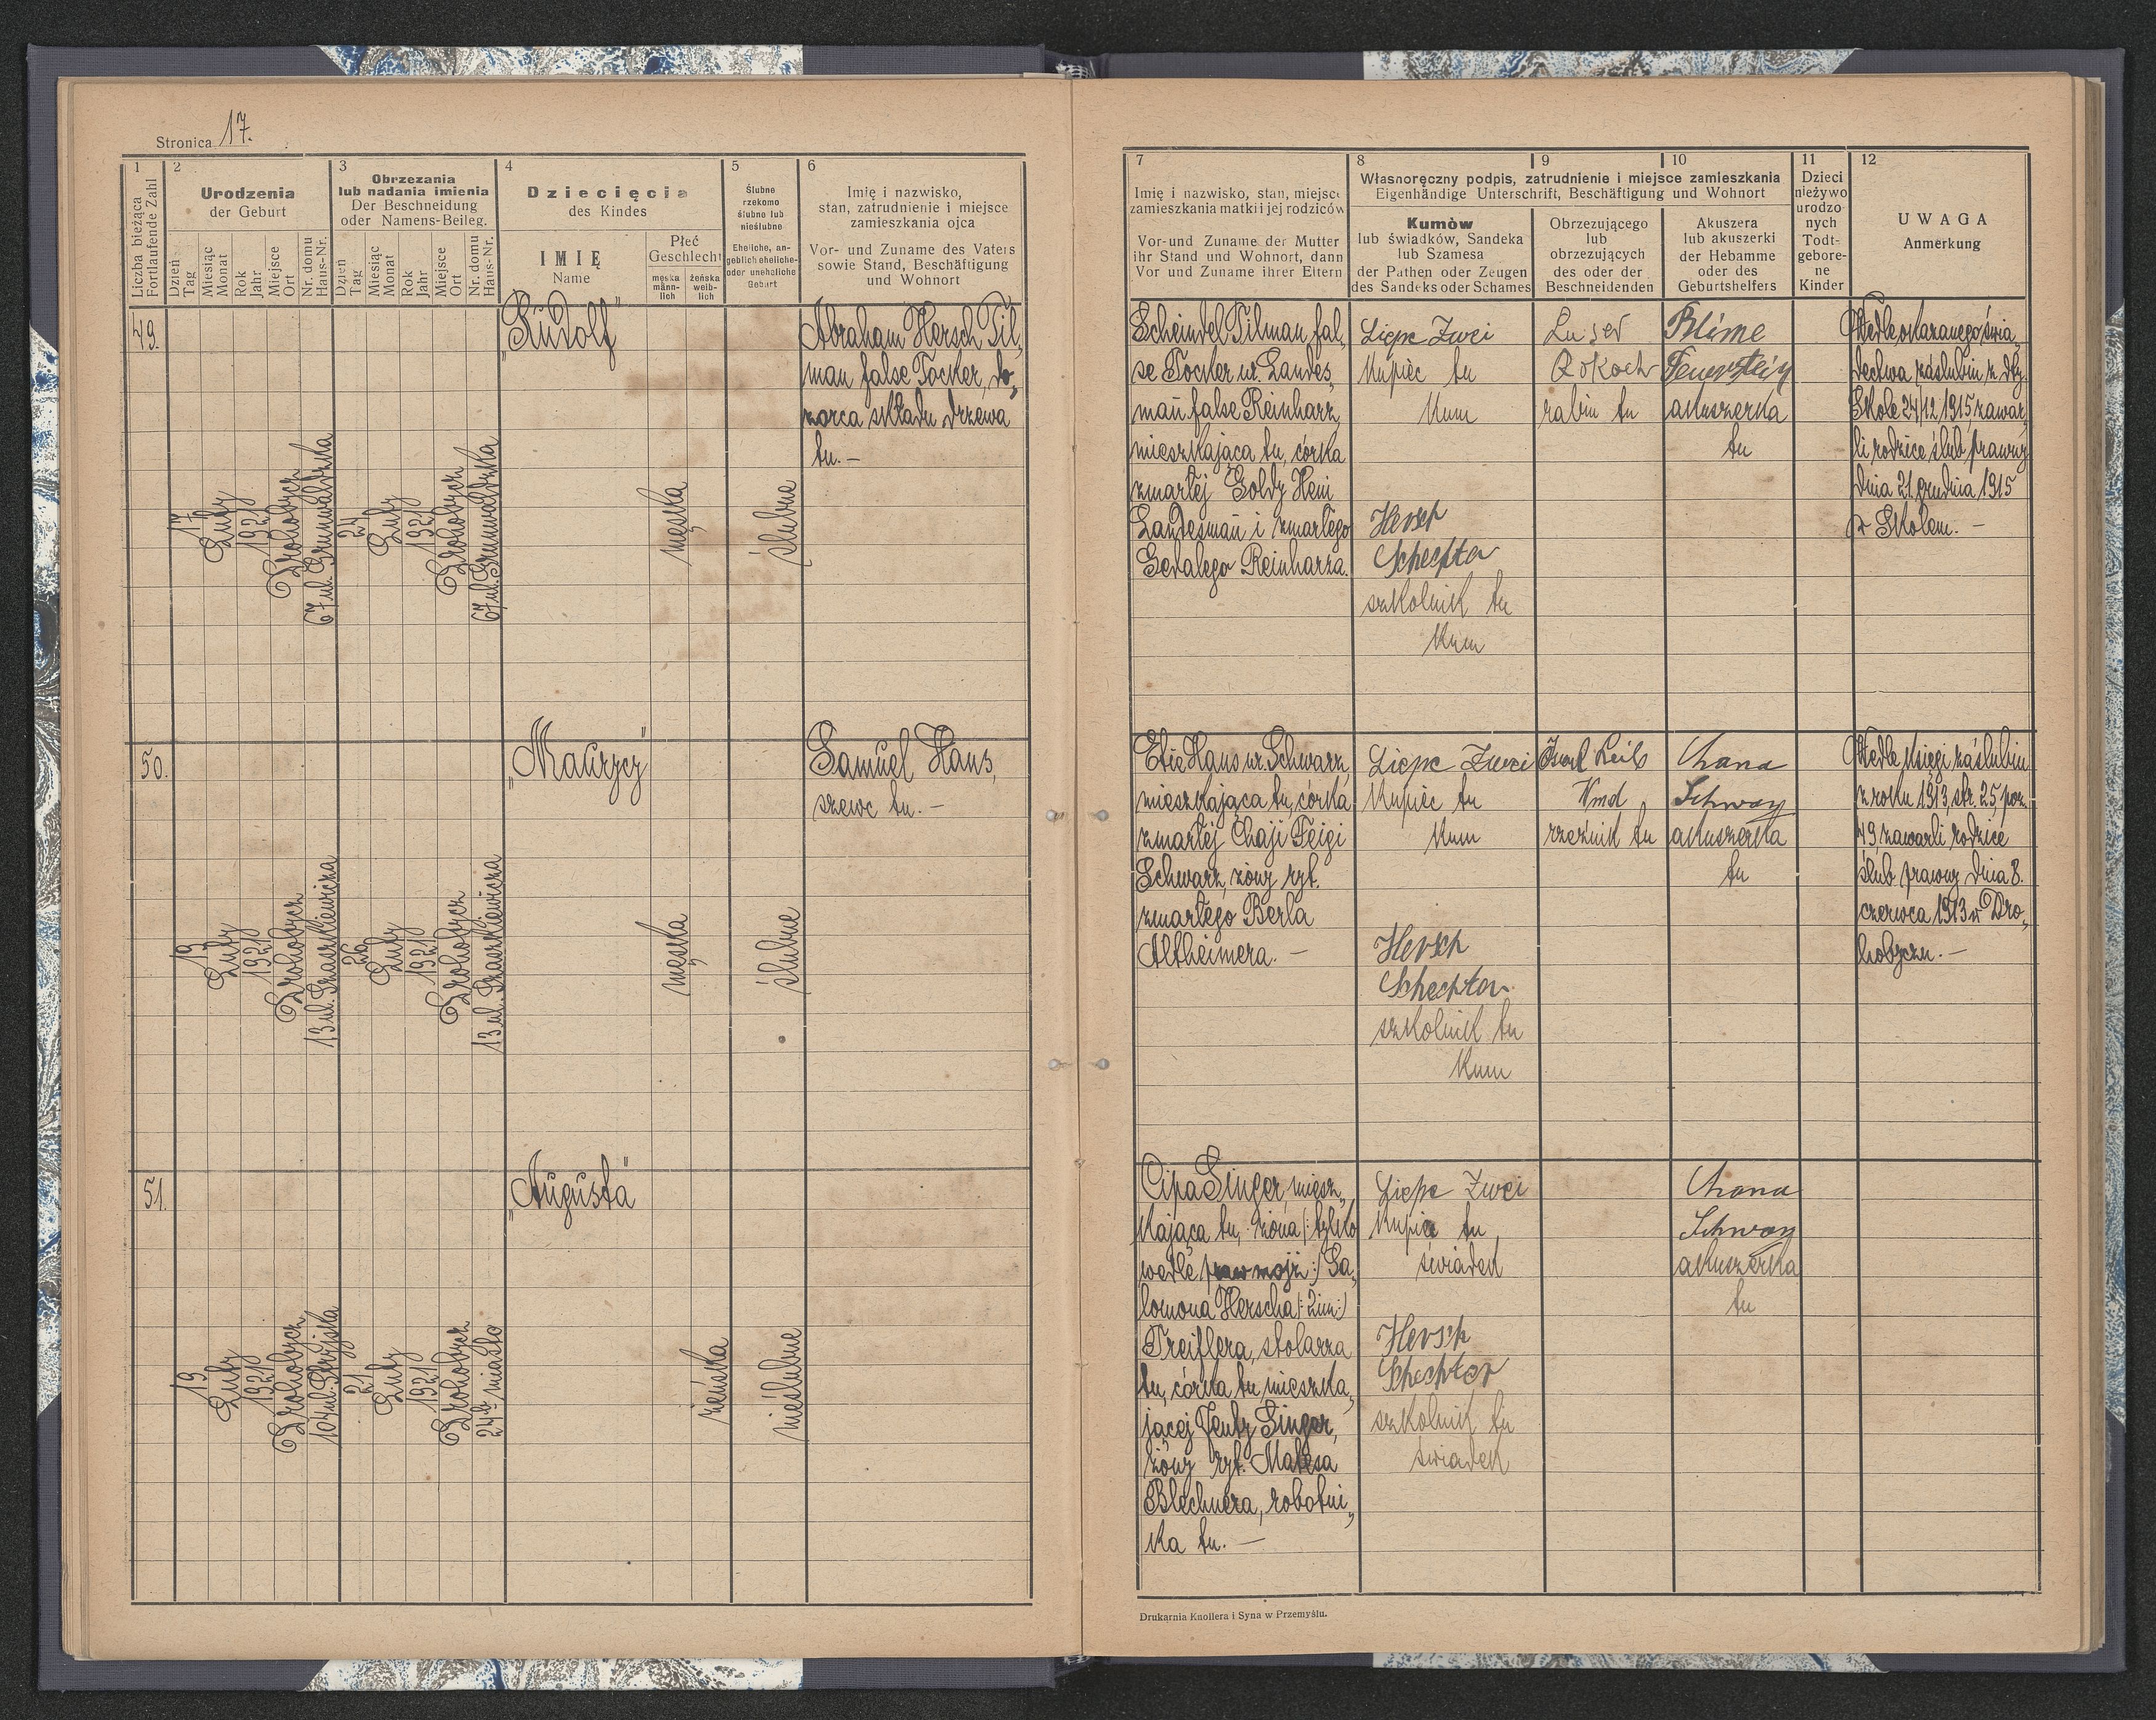 Stronica 17.
1
2
3
4
5
6
Liczba bieżąca
Fortlaufende Zahl
Urodzenia
der Geburt
Obrzezania
lub nadania imienia
Der Beschneidung
oder Namens-Beileg.
Dziecięcia
des Kindes
Ślubne
rzekomo
ślubne lub
nieślubne
Eheliche, an-
geblich eheliche-
oder uneheliche
Geburt
Imię i nazwisko,
stan, zatrudnienie i miejsce
zamieszkania ojca
Vor- und Zuname des Vaters
sowie Stand, Beschäftigung
und Wohnort
Dzień
Tag
Miesiąc
Monat
Rok
Jahr
Miejsce
Ort
Nr. domu
Haus-Nr.
Dzień
Tag
Miesiąc
Monat
Rok
Jahr
Miejsce
Ort
Nr. domu
Haus-Nr.
IMIĘ
Name
Płeć
Geschlecht
męska
männ-
lich
żeńska
weib-
lich
49.
17
Luty
1921
Drohobycz
67 ul. Grunwaldzka
24
Luty
1921
Drohobycz
67 ul. Grunwaldzka
"Rudolf"
męska
ślubne
Abraham Hersch Til-
man false Tocker, do-
zorca składu drzewa
tu. —
50.
19
Luty
1921
Drohobycz
13 ul. Szaszkiewicza
26
Luty
1921
Drohobycz
13 ul. Szaszkiewicza
"Maurycy"
męska
ślubne
Samuel Haus,
szewc tu. —
51.
19
Luty
1921
Drohobycz
104 ul. Stryjska
21
Luty
1921
Drohobycz
miasto
"Augusta"
żeńska
nieślubne
7
8
9
10
11
12
Imię i nazwisko, stan, miejsce
zamieszkania matki i jej rodziców
Vor-und Zuname der Mutter
ihr Stand und Wohnort, dann
Vor und Zuname ihrer Eltern
Własnoręczny podpis, zatrudnienie i miejsce zamieszkania
Eigenhändige Unterschrift, Beschäftigung und Wohnort
Kumòw
lub świadków, Sandeka
lub Szamesa
der Pathen oder Zeugen
des Sandeks oder Schames
Obrzezującego
lub
obrzezujących
des oder der
Beschneidenden
Akuszera
lub akuszerki
der Hebamme
oder des
Geburtshelfers
Dzieci
nieżywo
urodzo-
nych
Todt-
gebore-
ne
Kinder
UWAGA
Anmerkung
Scheindel Tilman fal-
se Tocker ur. Landes-
man false Reinharz,
mieszkająca tu, córka
zmarłej Goldy Heni
Landesman i zmarłego
Gedalego Reinharza.
Liepe Zwei
Kupiec tu
Kum
Hersch
Schechter
szkolnik tu
Kum
Rokach
rabin tu
Blime
Feuerstein
akuszerka
tu
Wedle okazanego świa-
dectwa zaślubin z dty
Skole 24/12 1915 zawar-
li rodzice ślub prawny
dnia 21 grudnia 1915
w Skolem. —
Etie Haus ur. Schwarz
mieszkająca tu, córka
zmarłej Chaji Feigi
Schwarz, żony ryt.
zmarłego Berla
Altheimera. —
Liepe Zwei
Kupiec tu
Kum
Hersch
Schechter
szkolnik tu
Kum
rzeźnik tu
Chana
Schwarz
akuszerka
tu
Wedle księgi zaślubin
z roku 1913, str. 25, poz.
49, zawarli rodzice
ślub prawny dnia 8.
czerwca 1913 w Dro-
hobyczu. —
Cipa Singer, miesz-
kająca tu, żona (: tylko
wedle praw mojż :) Sa-
lomona Herscha (: 2 im :)
Treiflera, stolarza
tu, córka tu mieszka-
jącej Jenty Singer,
żony ryt.
Blechnera, robotni-
ka tu. —
Liepe Zwei
Kupiec tu
świadek
Hersch
Schechter
szkolnik tu
świadek
Chana
Schwarz
akuszerka
tu
Drukarnia Knollera i Syna w Przemyślu.